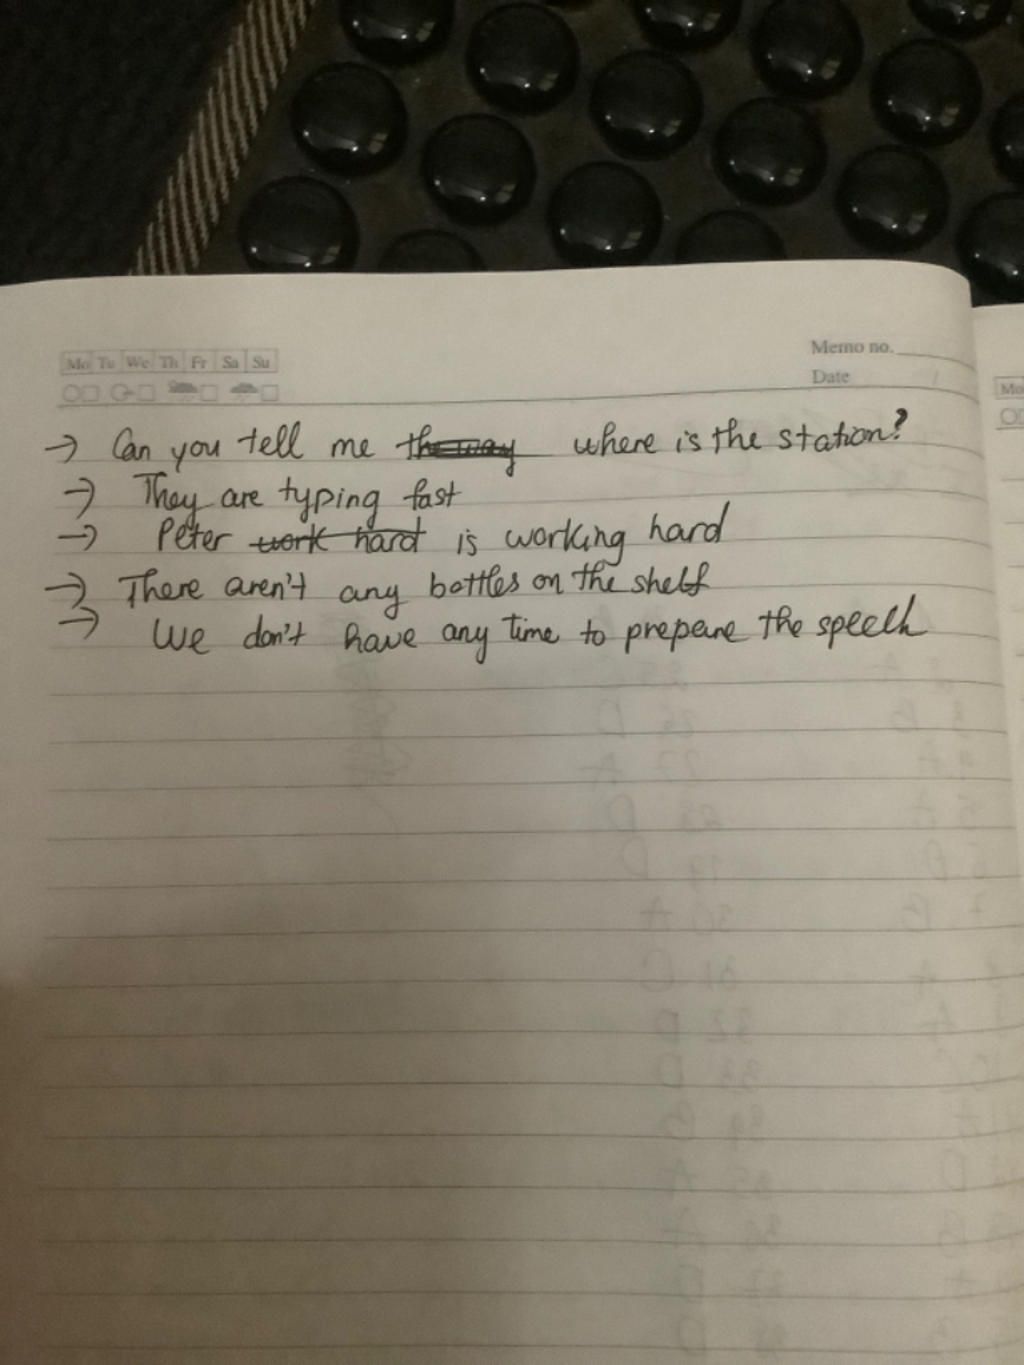 Mo Tu We Th Fr Sa Su
Memo no.
Date
Mo
→ Can you tell me the way where is the station?
→ They are typing fast
→ Peter work hard is working hard
→ There aren't any bottles on the shelf
→ We don't have any time to prepare the speech